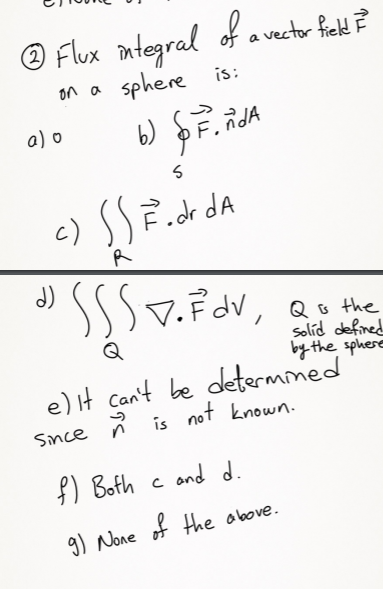 ② Flux integral of a vector field F⃗
on a sphere is:
a) 0 b) ∮_S F⃗ . n⃗ dA
c) ∬_R F⃗ . dr dA
d) ∭_Q ∇ . F⃗ dV, Q is the
solid defined
by the sphere
e) It can't be determined
since n⃗ is not known.
f) Both c and d.
g) None of the above.